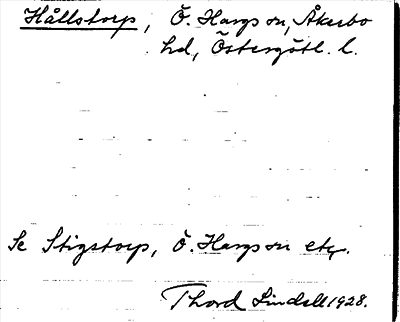 Hållstorp, Ö. Hargs sn, Åkerbo
hd, Östergötl. l.
Se Stigstorp, Ö. Hargs sn etc.
Thord Lindell 1928.